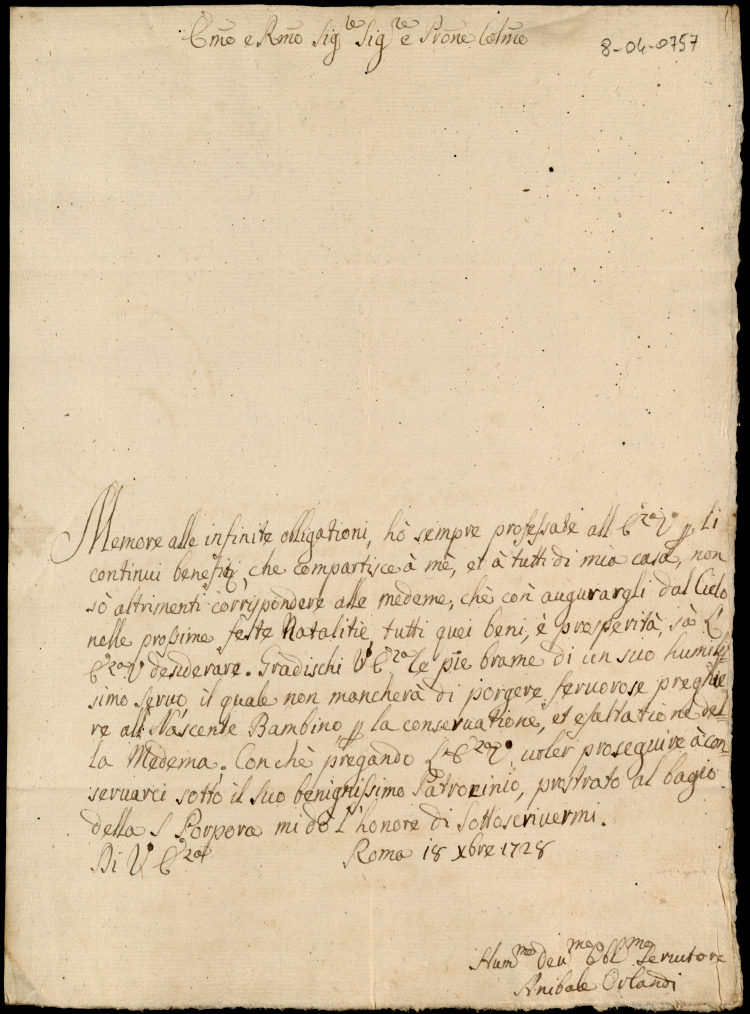 Emo e Rmo Sig.re Sig.re e Prone Colmo
8-04-0757
Memore alle infinite obligationi, hò sempre professate all E.za V.a p li
continui benefitij, che compartisce à mè, et à tutti di mia casa, non
sò altrimenti corrispondere alle medeme, chè con augurargli dal Cielo
nelle prossime feste Natalitie tutti quei beni, è prosperità, sà L'
E.za V desiderare. Gradischi V.E.za le pie brame di un suo humilis-
simo servo il quale non mancherà di porgere fervorose preghie-
re all Nascente Bambino p la conservatione, et esaltatione del-
la Medema. Con chè pregando L'E.za V. voler proseguire à con-
servarci sotto il suo benignissimo Patrocinio, prostrato al bagio
della S Porpora mi dò l'honore di sottoscrivermi.
Di V E.za
Roma 18 Xbre 1728
Hum.mo dev.mo Obl.mo Servitore
Anibale Orlandi